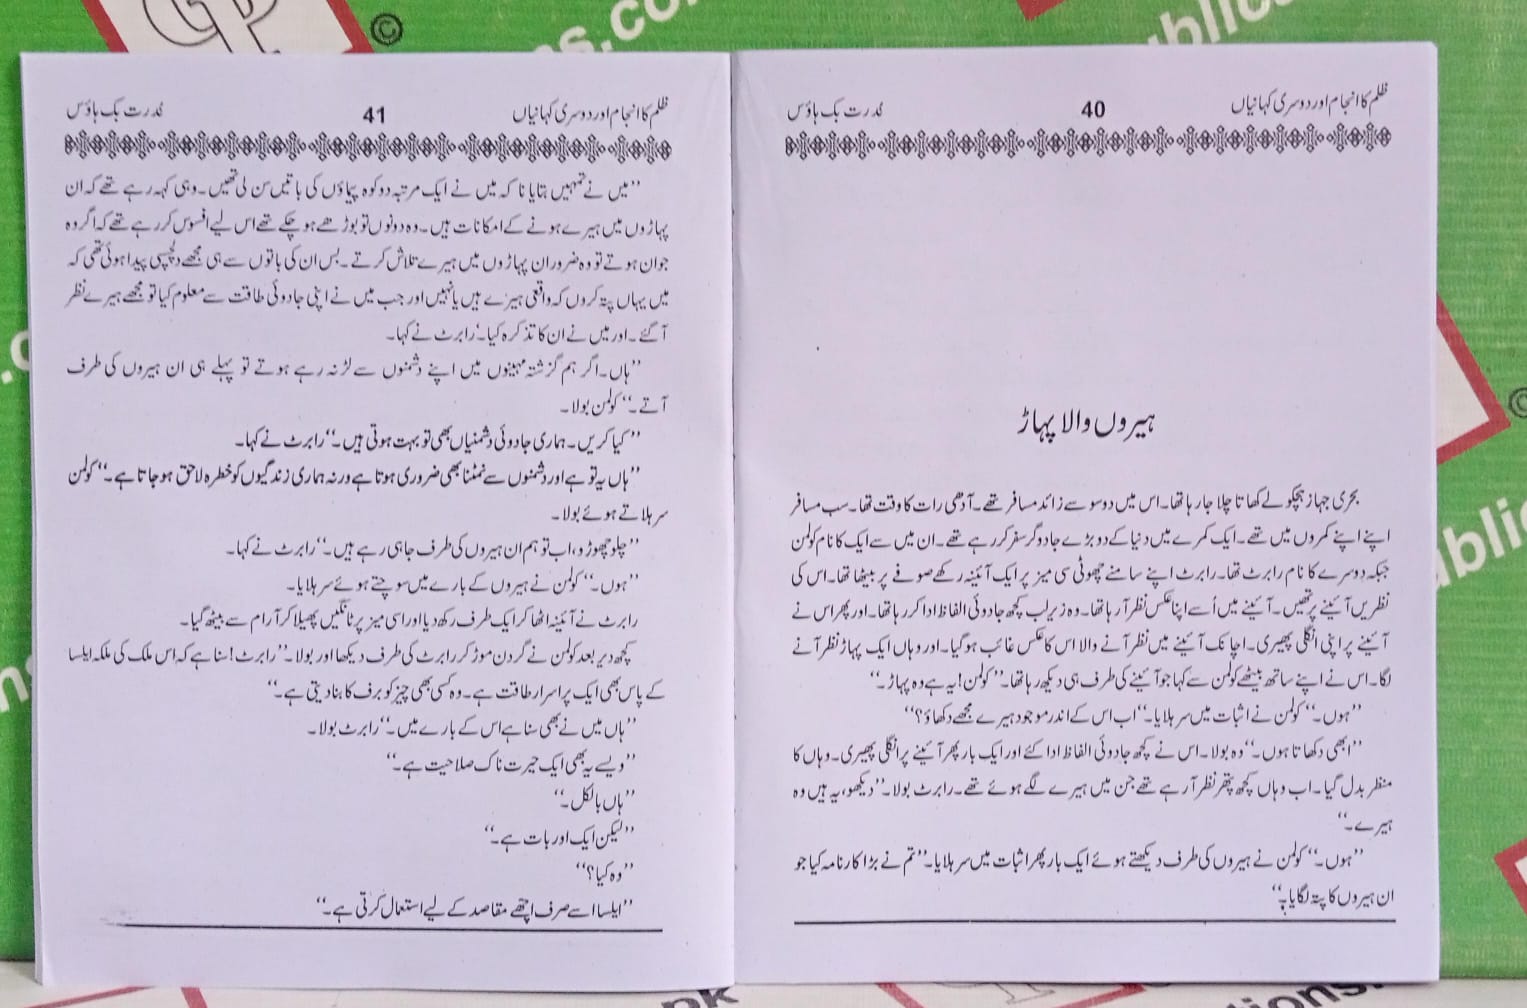 ظلم کا انجام اور دوسری کہانیاں 40 قدرت بک ہاؤس
ہیروں والا پہاڑ
بحری جہاز ہچکولے کھاتا چلا جا رہا تھا۔ اس میں دو سو سے زائد مسافر تھے۔ آدھی رات کا وقت تھا۔ سب مسافر
اپنے اپنے کمروں میں تھے۔ ایک کمرے میں دنیا کے دو بڑے جادوگر سفر کر رہے تھے۔ ان میں سے ایک کا نام کولمن
جبکہ دوسرے کا نام رابرٹ تھا۔ رابرٹ اپنے سامنے چھوٹی سی میز پر ایک آئینہ رکھے صوفے پر بیٹھا تھا۔ اس کی
نظریں آئینے پر تھیں۔ آئینے میں اُسے اپنا عکس نظر آ رہا تھا۔ وہ زیر لب کچھ جادوئی الفاظ ادا کر رہا تھا۔ اور پھر اس نے
آئینے پر اپنی انگلی پھیری۔ اچانک آئینے میں نظر آنے والا اس کا عکس غائب ہو گیا۔ اور وہاں ایک پہاڑ نظر آنے
لگا۔ اس نے اپنے ساتھ بیٹھے کولمن سے کہا جو آئینے کی طرف ہی دیکھ رہا تھا۔ ’’کولمن! یہ ہے وہ پہاڑ۔‘‘
’’ہوں۔‘‘ کولمن نے اثبات میں سر ہلایا۔ ’’اب اس کے اندر موجود ہیرے مجھے دکھاؤ؟‘‘
’’ابھی دکھاتا ہوں۔‘‘ وہ بولا۔ اس نے کچھ جادوئی الفاظ ادا کئے اور ایک بار پھر آئینے پر انگلی پھیری۔ وہاں کا
منظر بدل گیا۔ اب وہاں کچھ پتھر نظر آ رہے تھے جن میں ہیرے لگے ہوئے تھے۔ رابرٹ بولا۔ ’’دیکھو، یہ ہیں وہ
ہیرے۔‘‘
’’ہوں۔‘‘ کولمن نے ہیروں کی طرف دیکھتے ہوئے ایک بار پھر اثبات میں سر ہلایا۔ ’’تم نے بڑا کارنامہ کیا جو
ان ہیروں کا پتہ لگایا۔‘‘
ظلم کا انجام اور دوسری کہانیاں 41 قدرت بک ہاؤس
’’میں نے تمہیں بتایا نا کہ میں نے ایک مرتبہ دو کوہ پیماؤں کی باتیں سن لی تھیں۔ وہی کہہ رہے تھے کہ ان
پہاڑوں میں ہیرے ہونے کے امکانات ہیں۔ وہ دونوں تو بوڑھے ہو چکے تھے اس لیے افسوس کر رہے تھے کہ اگر وہ
جوان ہوتے تو وہ ضرور ان پہاڑوں میں ہیرے تلاش کرتے۔ بس ان کی باتوں سے ہی مجھے دلچسپی پیدا ہوئی تھی کہ
میں یہاں پتہ کروں کہ واقعی ہیرے ہیں یا نہیں اور جب میں نے اپنی جادوئی طاقت سے معلوم کیا تو مجھے ہیرے نظر
آ گئے۔ اور میں نے ان کا تذکرہ کیا۔‘ رابرٹ نے کہا۔
’’ہاں۔ اگر ہم گزشتہ مہینوں میں اپنے دشمنوں سے لڑ نہ رہے ہوتے تو پہلے ہی ان ہیروں کی طرف
آتے۔‘‘ کولمن بولا۔
’’کیا کریں۔ ہماری جادوئی دشمنیاں بھی تو بہت ہوتی ہیں۔‘‘ رابرٹ نے کہا۔
’’ہاں یہ تو ہے اور دشمنوں سے نمٹنا بھی ضروری ہوتا ہے ورنہ ہماری زندگیوں کو خطرہ لاحق ہو جاتا ہے۔‘‘ کولمن
سر ہلاتے ہوئے بولا۔
’’چلو چھوڑو، اب تو ہم ان ہیروں کی طرف جا ہی رہے ہیں۔‘‘ رابرٹ نے کہا۔
’’ہوں۔‘‘ کولمن نے ہیروں کے بارے میں سوچتے ہوئے سر ہلایا۔
رابرٹ نے آئینہ اٹھا کر ایک طرف رکھ دیا اور اسی میز پر ٹانگیں پھیلا کر آرام سے بیٹھ گیا۔
کچھ دیر بعد کولمن نے گردن موڑ کر رابرٹ کی طرف دیکھا اور بولا۔ ’’رابرٹ! سنا ہے کہ اس ملک کی ملکہ ایلسا
کے پاس بھی ایک پراسرار طاقت ہے۔ وہ کسی بھی چیز کو برف کا بنا دیتی ہے۔‘‘
’’ہاں میں نے بھی سنا ہے اس کے بارے میں۔‘‘ رابرٹ بولا۔
’’ویسے یہ بھی ایک حیرت ناک صلاحیت ہے۔‘‘
’’ہاں بالکل۔‘‘
’’لیکن ایک اور بات ہے۔‘‘
’’وہ کیا؟‘‘
’’ایلسا اسے صرف اچھے مقاصد کے لیے استعمال کرتی ہے۔‘‘